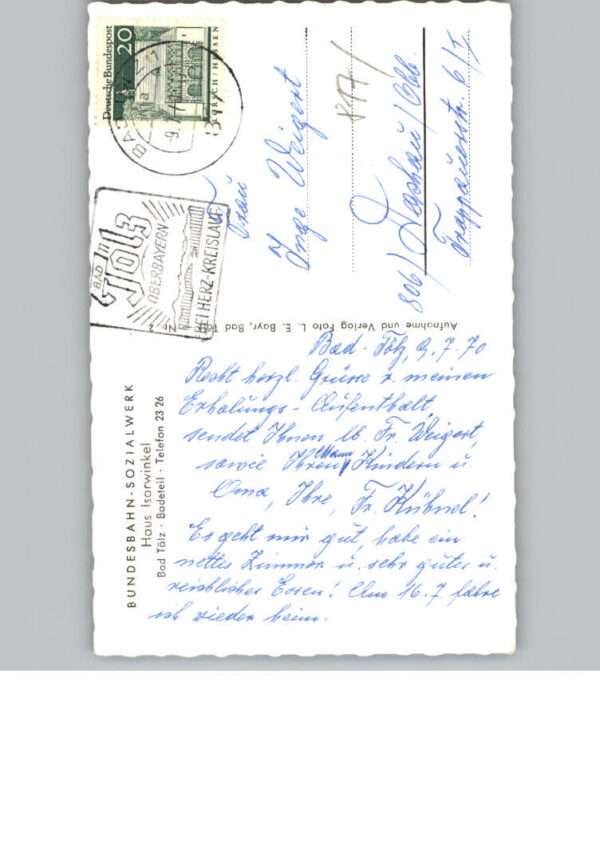 BUNDESBAHN-SOZIALWERK
Haus Isarwinkel
Bad Tölz · Badeteil · Telefon 23 26
Bad-Tölz, 9.7.70
Recht herzl. Grüsse v. meinen
Erholungs-Aufenthalt,
sendet Ihnen lb. Fr. Weigert,
sowie Ihren Mann Kindern u.
Oma, Ihre, Fr. Kühnel!
Es geht mir gut, habe ein
nettes Zimmer u. sehr gutes u.
reichliches Essen! Am 16.7. fahre
ich wieder heim.
Aufnahme und Verlag Foto L. E. Bayr, Bad Tölz - Nr. 2
Deutsche Bundespost
20
LORSCH / HESSEN
BAD
a
-9.7.
BAD
Tölz
OBERBAYERN
BEI HERZ-KREISLAUF
817/
Frau
Inge Weigert
806) Dachau/Obb.
6/I